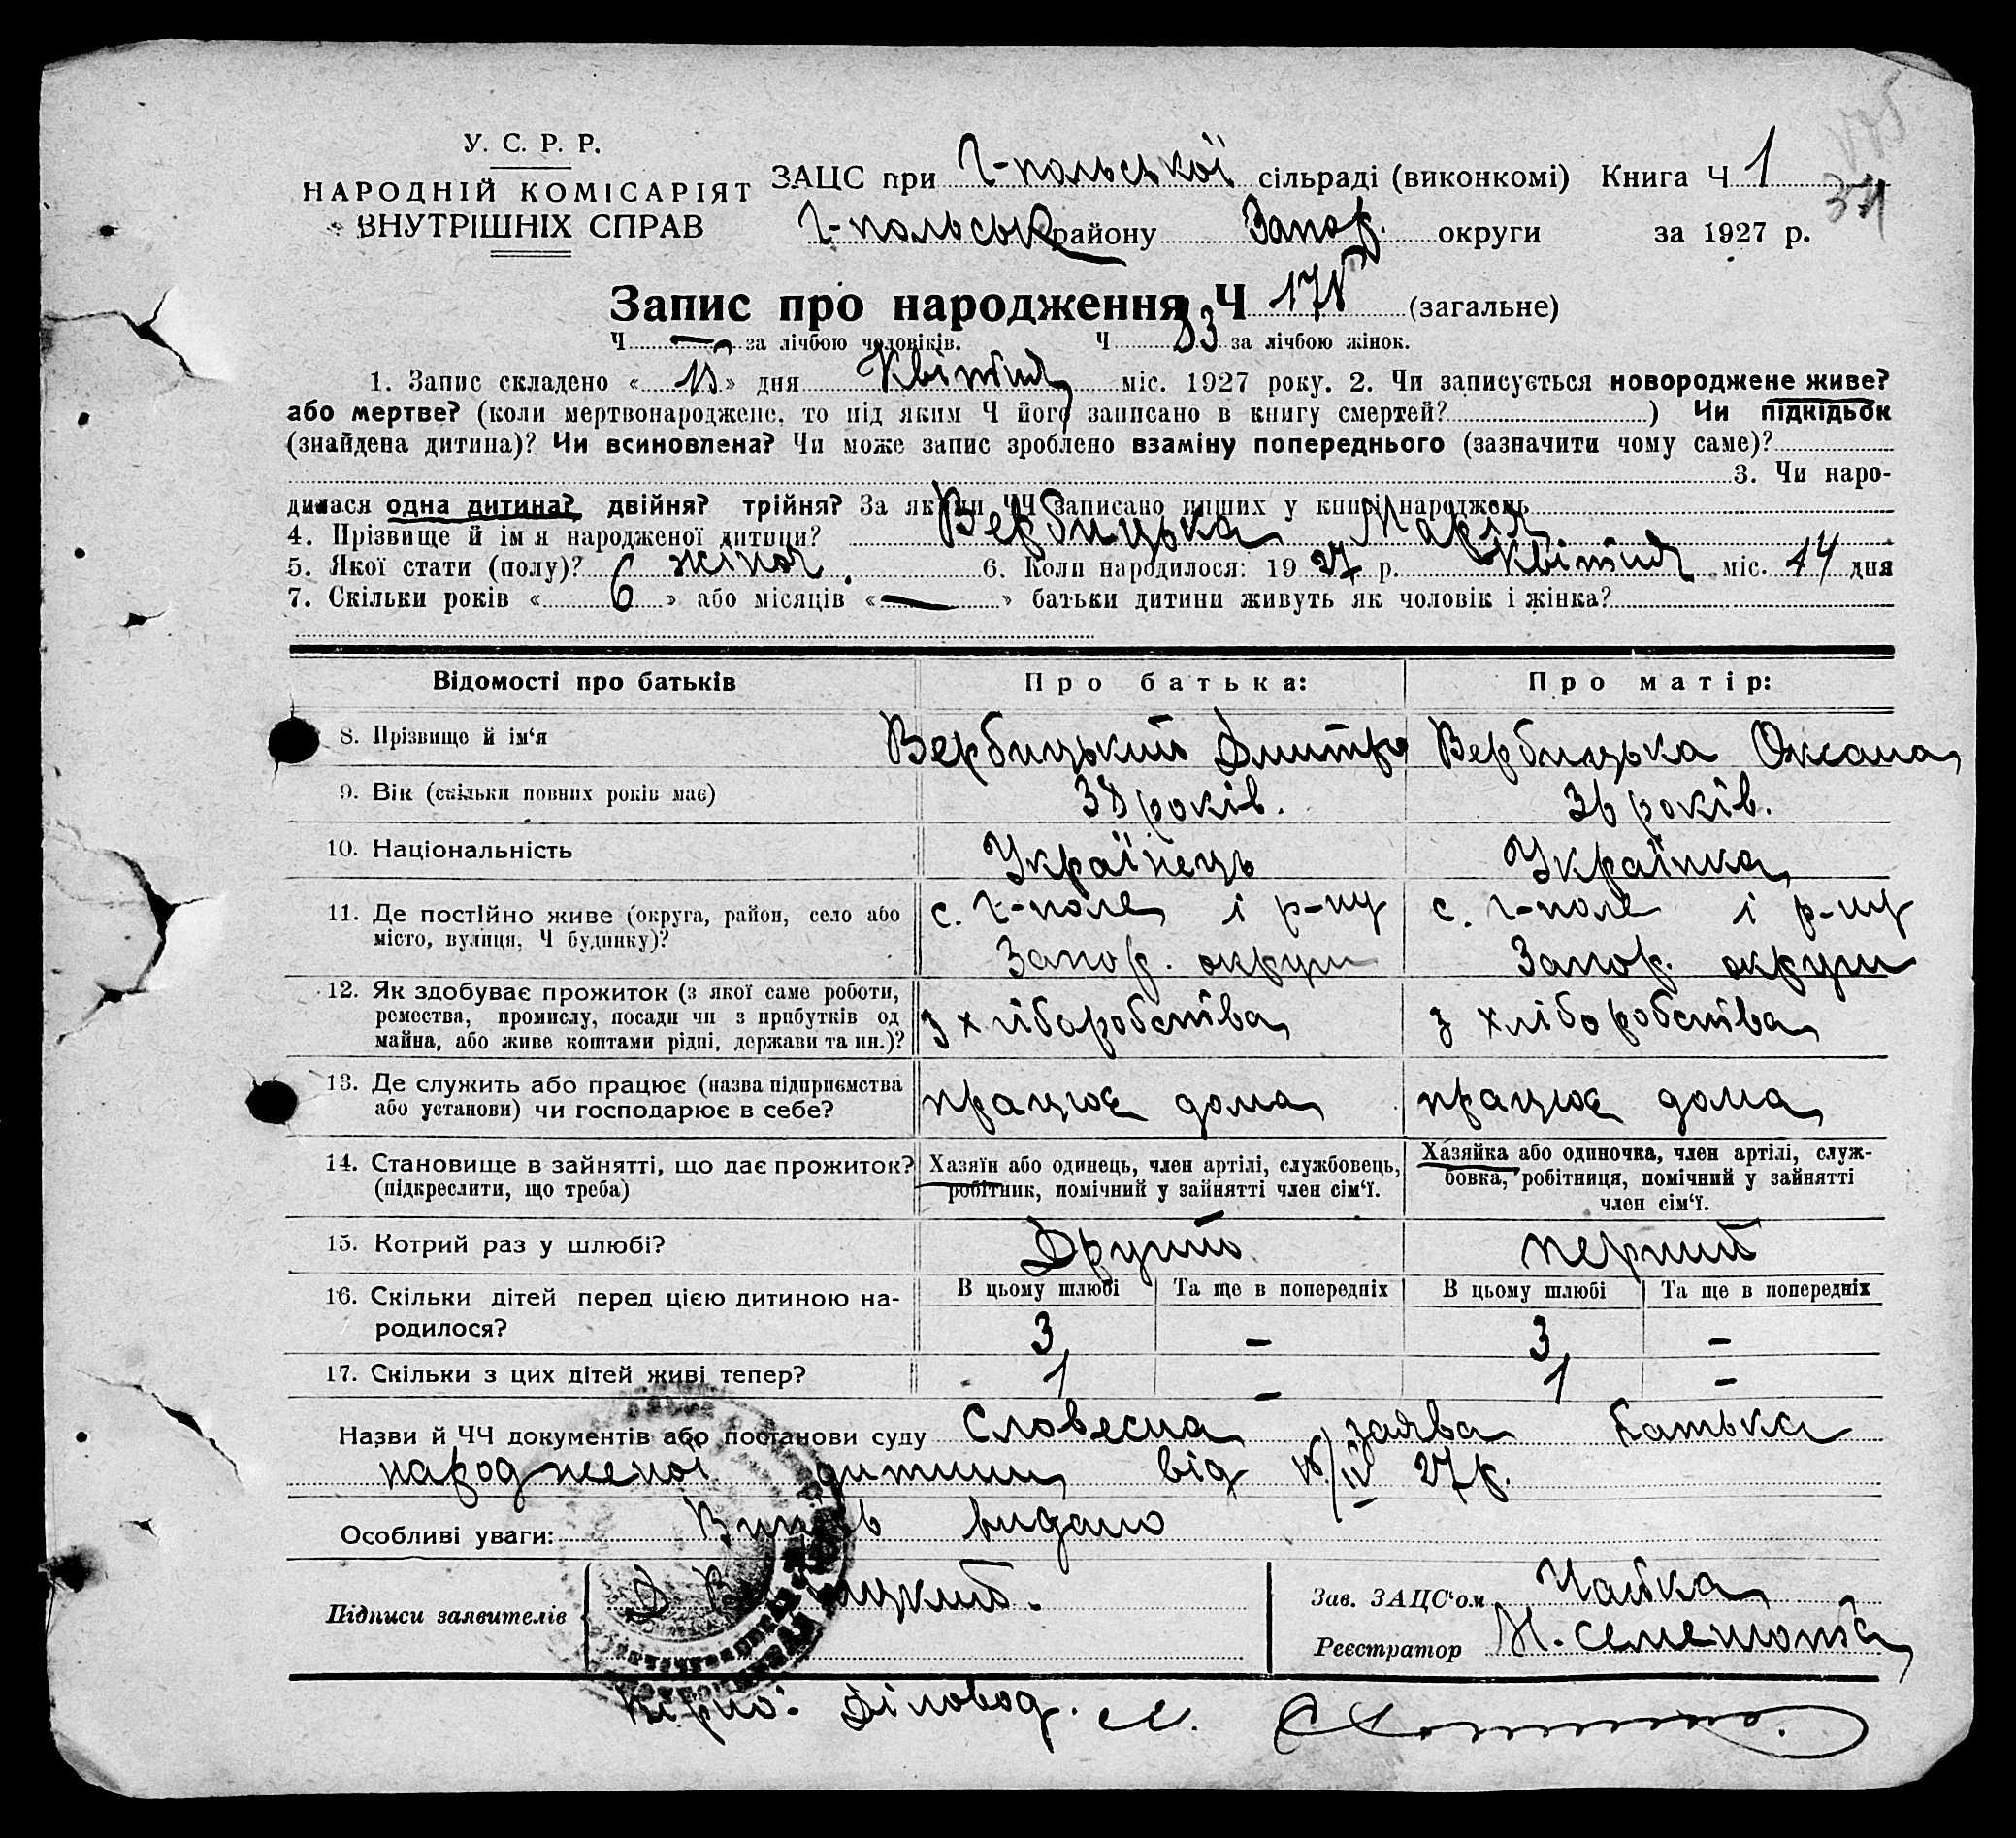 У. С. Р. Р.
НАРОДНІЙ КОМІСАРІЯТ
ВНУТРІШНІХ СПРАВ
ЗАЦС при Г-польської сільраді (виконкомі) Книга Ч 1
34
Г-польськ району Запор. округи за 1927 р.
Запис про народження Ч (загальне)
Ч — за лічбою чоловіків. Ч 83 за лічбою жінок.
1. Запис складено « 15 » дня Квітня міс. 1927 року. 2. Чи записується новороджене живе?
або мертве? (коли мертвонароджене, то під яким Ч його записано в книгу смертей? ) Чи підкідьок
(знайдена дитина)? Чи всиновлена? Чи може запис зроблено взаміну попереднього (зазначити чому саме)?
3. Чи наро-
дилася одна дитина? двійня? трійня? За якими ЧЧ записано инших у книзі народжень
4. Прізвище й ім я народженої дитини? Вербицька Марія
5. Якої стати (полу)? жіноч. 6. Коли народилося: 19 27 р. Квітня міс. 14 дня
7. Скільки років « 6 » або місяців « — » батьки дитини живуть як чоловік і жінка?
Відомості про батьків Про батька: Про матір:
8. Прізвище й ім‘я Вербицький Дмитро Вербицька Оксана
9. Вік (скільки повних років має) 38 років. 36 років.
10. Національність Українець Українка
11. Де постійно живе (округа, район, село або с. Г-поле і р-ну с. Г-поле і р-ну
місто, вулиця, Ч будинку)? Запор. округи Запор. округи
12. Як здобуває прожиток (з якої саме роботи,
ремества, промислу, посади чи з прибутків од з хліборобства з хліборобства
майна, або живе коштами рідні, держави та ин.)?
13. Де служить або працює (назва підприємства працює дома працює дома
або установи) чи господарює в себе?
14. Становище в зайнятті, що дає прожиток? Хазяїн або одинець, член артілі, службовець, Хазяйка або одиночка, член артілі, служ-
(підкреслити, що треба) робітник, помічний у зайнятті член сім‘ї. бовка, робітниця, помічний у зайнятті
член сім‘ї.
15. Котрий раз у шлюбі? Другий перший
16. Скільки дітей перед цією дитиною на- В цьому шлюбі Та ще в попередніх В цьому шлюбі Та ще в попередніх
родилося? 3 - 3 -
17. Скільки з цих дітей живі тепер? 1 - 1 -
Назви й ЧЧ документів або постанови суду Словесна заява батька
народженої дитини від 15/IV 27р.
Особливі уваги: Витяь видано
Підписи заявителів Д Вербицкий.
Зав. ЗАЦС‘ом Чайка
Реєстратор
Вірно: Діловод.